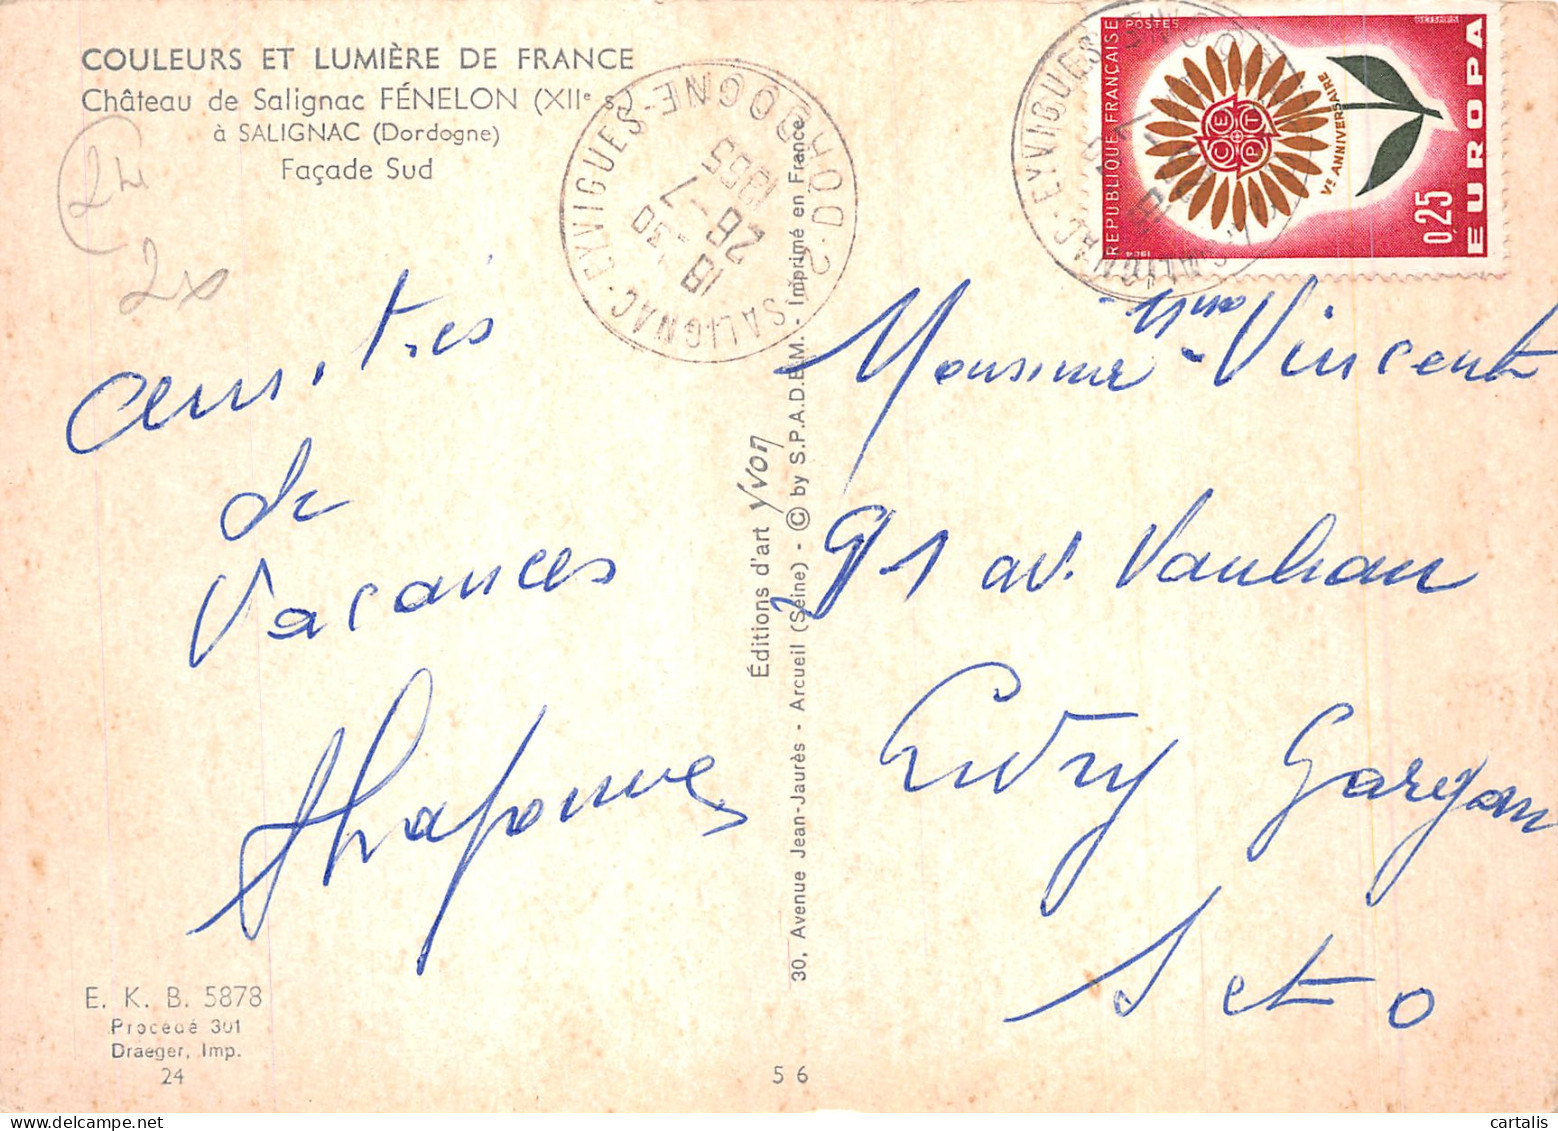 COULEURS ET LUMIÈRE DE FRANCE
Château de Salignac FÉNELON (XIIe s.)
à SALIGNAC (Dordogne)
Façade Sud
24
2x
SALIGNAC-EYVIGUES-DORDOGNE
18 -30
26-7
1965
REPUBLIQUE FRANÇAISE
POSTES
CEPT
Ve ANNIVERSAIRE
0,25
EUROPA
1964
amitiés
de
Vacances
Éditions d'art Yvon
30, Avenue Jean-Jaurès - Arcueil (Seine) - © by S.P.A.D.E.M. - Imprimé en France
Monsieur Mme Vincent
91 av. Vauban
Livry Gargan
S et O
E. K. B. 5878
Procédé 301
Draeger, Imp.
24
56
cartalis